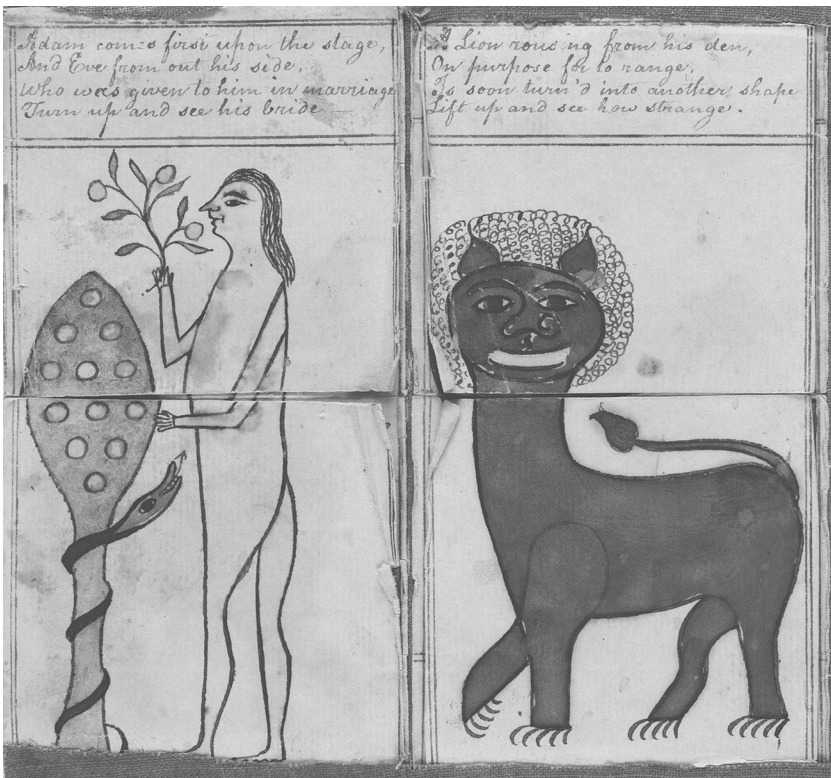 Adam comes first upon the stage,
And Eve from out his side,
Who was given to him in marriage
Turn up and see his bride
A Lion rousing from his den,
On purpose for to range,
Is soon turn'd into another shape
Lift up and see how strange.